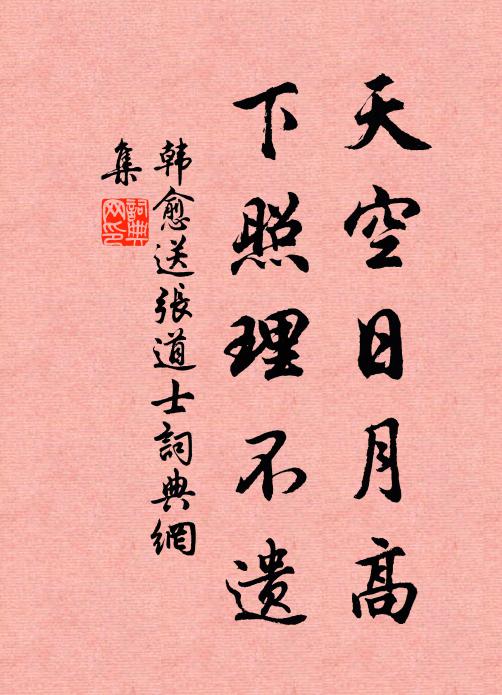 天空日月高
下照理不遗
韩愈送張道士詞典網
集
詞典
网印